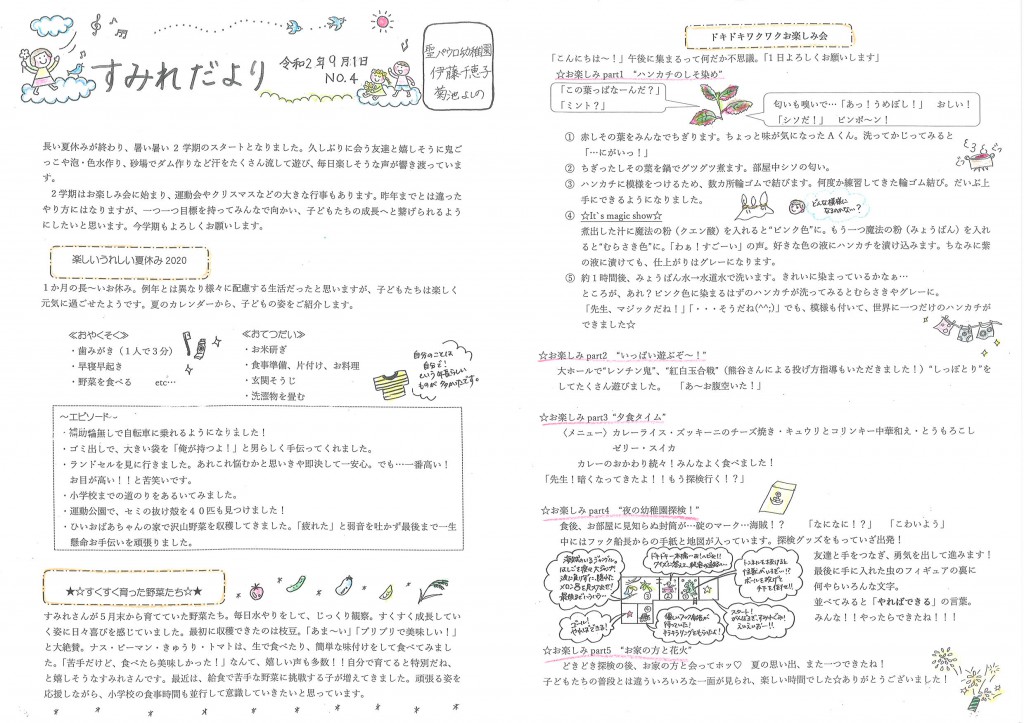 すみれだより
令和2年9月1日
NO.4
聖パウロ幼稚園
伊藤千恵子
菊池よしの
長い夏休みが終わり、暑い暑い2学期のスタートとなりました。久しぶりに会う友達と嬉しそうに鬼ご
っこや泡・色水作り、砂場でダム作りなど汗をたくさん流して遊び、毎日楽しそうな声が響き渡っていま
す。
2学期はお楽しみ会に始まり、運動会やクリスマスなどの大きな行事もあります。昨年までとは違った
やり方にはなりますが、一つ一つ目標を持ってみんなで向かい、子どもたちの成長へと繋げられるように
にしたいと思います。今学期もよろしくお願いします。
楽しいうれしい夏休み2020
1か月の長～いお休み。例年とは異なり様々に配慮する生活だったと思いますが、子どもたちは楽しく
元気に過ごせたようです。夏のカレンダーから、子どもの姿をご紹介します。
≪おやくそく≫
・歯みがき（1人で3分）
・早寝早起き
・野菜を食べる　etc…
≪おてつだい≫
・お米研ぎ
・食事準備、片付け、お料理
・玄関そうじ
・洗濯物を畳む
自分のことは
自分で！
という年長らしい
ものが多かったです。
～エピソード～
・補助輪無しで自転車に乗れるようになりました！
・ゴミ出しで、大きい袋を「俺が持つよ！」と男らしく手伝ってくれました。
・ランドセルを見に行きました。あれこれ悩むかと思いきや即決して一安心。でも…一番高い！
お目が高い！！と苦笑いです。
・小学校までの道のりをあるいてみました。
・運動公園で、セミの抜け殻を40匹も見つけました！
・ひいおばあちゃんの家で沢山野菜を収穫してきました。「疲れた」と弱音を吐かず最後まで一生
懸命お手伝いを頑張りました。
★☆すくすく育った野菜たち☆★
すみれさんが5月末から育てていた野菜たち。毎日水やりをして、じっくり観察。すくすく成長してい
く姿に日々喜びを感じていました。最初に収穫できたのは枝豆。「あま～い」「プリプリで美味しい！」
と大絶賛。ナス・ピーマン・きゅうり・トマトは、生で食べたり、簡単な味付けをして食べてみまし
た。「苦手だけど、食べたら美味しかった！」なんて、嬉しい声も多数！！自分で育てると特別だね、
と嬉しそうなすみれさんです。最近は、給食で苦手な野菜に挑戦する子が増えてきました。頑張る姿を
応援しながら、小学校の食事時間も並行して意識していきたいと思っています。
ドキドキワクワクお楽しみ会
「こんにちは～！」午後に集まるって何だか不思議。「1日よろしくお願いします」
☆お楽しみpart1　“ハンカチのしそ染め”
「この葉っぱなーんだ？」
「ミント？」
匂いも嗅いで…「あっ！うめぼし！」　おしい！
「シソだ！」　ピンポ～ン！
① 赤しその葉をみんなでちぎります。ちょっと味が気になったAくん。洗ってかじってみると
「…にがいっ！」
② ちぎったしその葉を鍋でグツグツ煮ます。部屋中シソの匂い。
③ ハンカチに模様をつけるため、数カ所輪ゴムで結びます。何度か練習してきた輪ゴム結び。だいぶ上
手にできるようになりました。
どんな模様に
なるのかな…？
④ ☆It`s magic show☆
煮出した汁に魔法の粉（クエン酸）を入れると“ピンク色”に。もう一つ魔法の粉（みょうばん）を入れ
ると“むらさき色”に。「わぁ！すごーい」の声。好きな色の液にハンカチを漬け込みます。ちなみに紫
の液に漬けても、仕上がりはグレーになります。
⑤ 約1時間後、みょうばん水→水道水で洗います。きれいに染まっているかなぁ…
ところが、あれ？ピンク色に染まるはずのハンカチが洗ってみるとむらさきやグレーに。
「先生、マジックだね！」「・・・そうだね(^^;)」でも、模様も付いて、世界に一つだけのハンカチが
できました☆
☆お楽しみpart2　“いっぱい遊ぶぞ～！”
大ホールで“レンチン鬼”、“紅白玉合戦”（熊谷さんによる投げ方指導もいただきました！）“しっぽとり”を
してたくさん遊びました。　「あ～お腹空いた！」
☆お楽しみpart3 “夕食タイム”
〈メニュー〉カレーライス・ズッキーニのチーズ焼き・キュウリとコリンキー中華和え・とうもろこし
ゼリー・スイカ
カレーのおかわり続々！みんなよく食べました！
「先生！暗くなってきたよ！！もう探検行く！？」
☆お楽しみpart4　“夜の幼稚園探検！”
食後、お部屋に見知らぬ封筒が…碇のマーク…海賊！？　「なになに！？」　「こわいよう」
中にはフック船長からの手紙と地図が入っています。探検グッズをもっていざ出発！
友達と手をつなぎ、勇気を出して進みます！
最後に手に入れた虫のフィギュアの裏に
何やらいろんな文字。
並べてみると「やればできる」の言葉。
みんな！！やったらできたね！！！
ゴール！
やればできる！
☆お楽しみpart5　“お家の方と花火”
どきどき探検の後、お家の方と会ってホッ♡　夏の思い出、また一つできたね！
子どもたちの普段とは違ういろいろな一面が見られ、楽しい時間でした☆ありがとうございました！